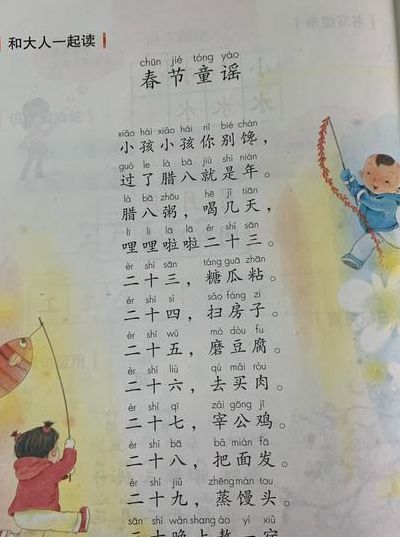 和大人一起读
chūn jié tóng yáo
春节童谣
xiǎo hái xiǎo hái nǐ bié chán
小孩小孩你别馋，
guò le là bā jiù shì nián
过了腊八就是年。
là bā zhōu hē jǐ tiān
腊八粥，喝几天，
lī lī lā lā èr shí sān
哩哩啦啦二十三。
èr shí sān táng guā zhān
二十三，糖瓜粘。
èr shí sì sǎo fáng zi
二十四，扫房子。
èr shí wǔ mò dòu fu
二十五，磨豆腐。
èr shí liù qù mǎi ròu
二十六，去买肉。
èr shí qī zǎi gōng jī
二十七，宰公鸡。
èr shí bā bǎ miàn fā
二十八，把面发。
èr shí jiǔ zhēng mán tou
二十九，蒸馒头。
sān shí wǎn shang áo yì xiǔ
三十晚上熬一宿